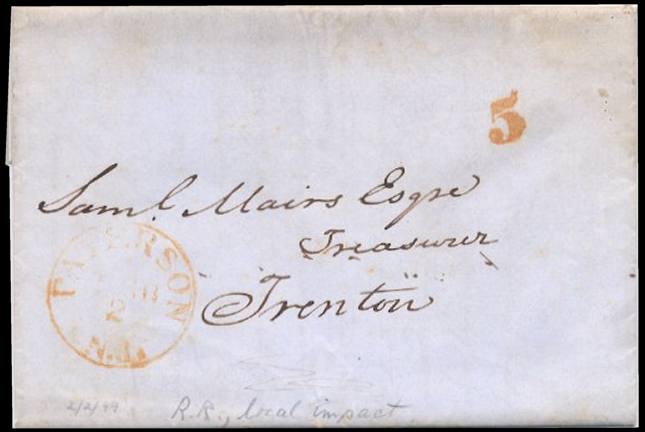 5
Saml. Mairs Esqre
Treasurer
Trenton
PATERSON
2
N.J.
R.R., local impact